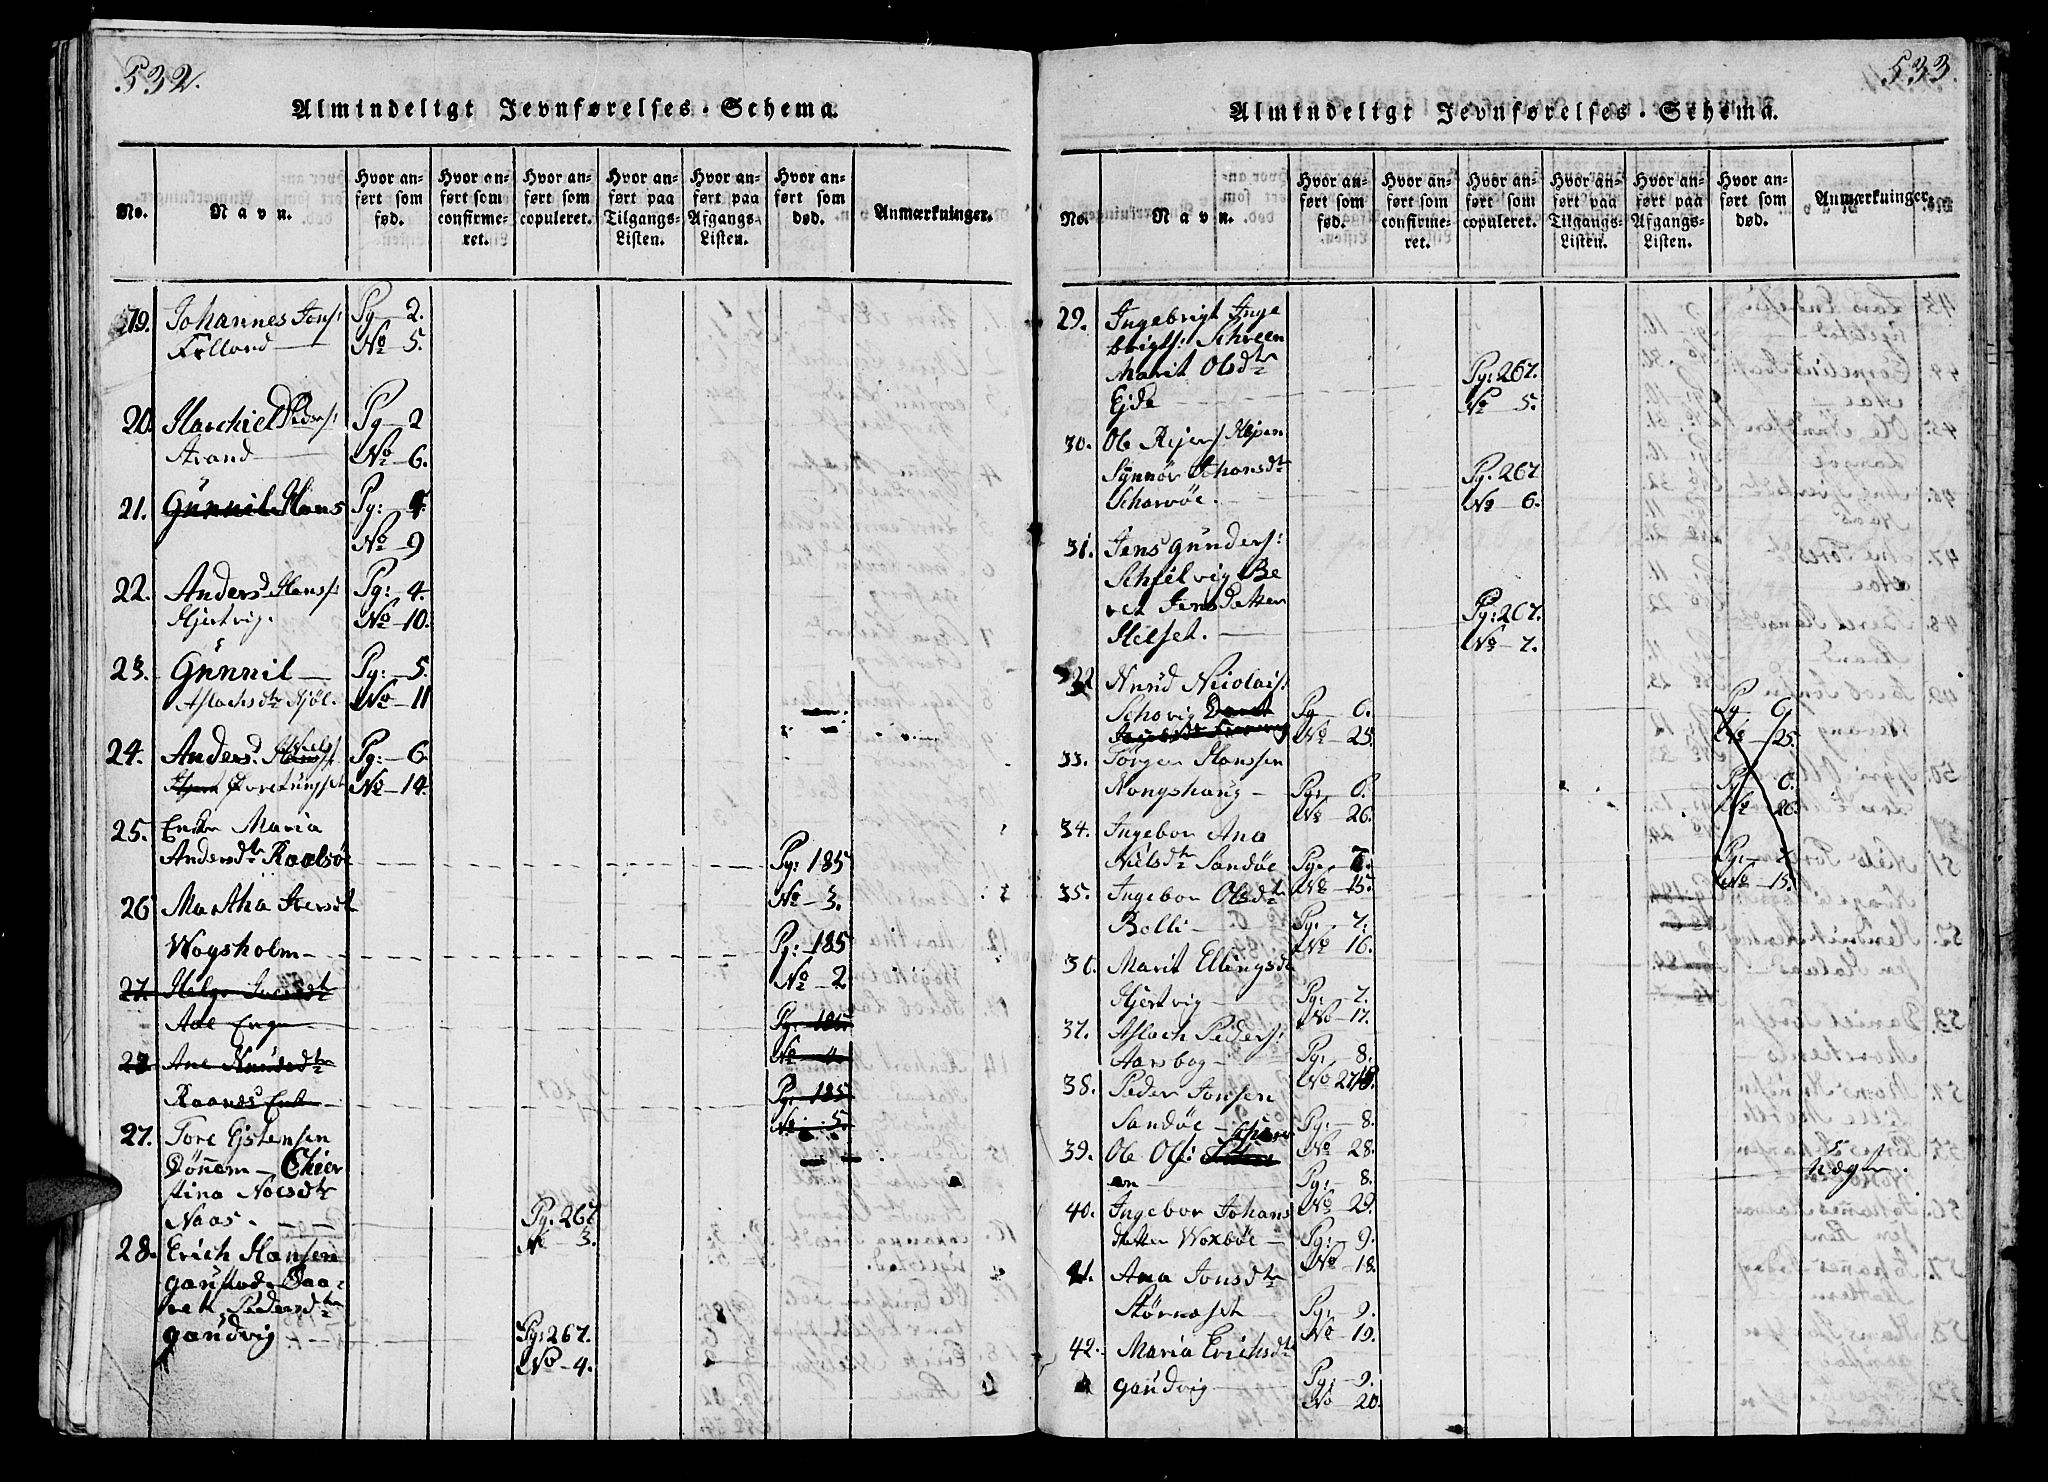 532.
Almindeligt Jevnførelses-Schema.
No.
Navn.
Hvor anført som fød.
Hvor anført som confirmeret.
Hvor anført som copuleret.
Hvor anført paa Tilgangs-Listen.
Hvor anført paa Afgangs-Listen.
Hvor anført som død.
Anmærkninger.
19. Johannes Jons: Pg - 2.
No - 5.
20. Peders: Pg - 2
Strand No - 6.
21. Günnil Hans Pg: 4
No - 9
22. Anders Hans: Pg: - 4.
Hjertvig. No - 10.
23. Günnil - Pg: - 5.
Aslachsdtr No - 11
24. Anders Pg: - 6.
No - 14.
25. Enke Maria
Andersdtr Pg: 185
No - 3.
26 Martha Iversdt
Wogsholm - Pg: - 185
No - 2
27. Helge
Aae Pg: 185
No
28 Ane Knudsdtr
Enk Pg: 185
No 5.
27. Tore Ejstensen
Dønem - Chier
stina
Naas. - Pg: 267
No 3.
28. Erich Hansen
Gaustad. Maa-
ret Pedersdtr
Gaudvig Pg: 267.
No - 4.
533.
Almindeligt Jevnførelses-Schema.
No.
Navn.
Hvor anført som fød.
Hvor anført som confirmeret.
Hvor anført som copuleret.
Hvor anført paa Tilgangs-Listen.
Hvor anført paa Afgangs-Listen.
Hvor anført som død.
Anmærkninger.
29. Ingebrigt Inge
brigts:
Marit Olsdtr Pg: 267.
Ejde No - 5.
30. Ole
Synnøv Johansdtr Pg. 267
No - 6.
31. Jens Gunders:
Schielvig Be
ret Jensdatter Pg: 267.
Helset. No - 7.
32 Knud Nicolais:
Schovig Pg - 6. Pg - 6
No - 25. No - 25.
33. Jørgen Hanssen
Kongshaug - Pg: - 6. Pg - 6.
No - 26. No - 26.
34. Ingebor Ana
Nielsdtr Sandøe Pg: - 7. Pg: - 7
No - 15. No - 15.
35. Ingebor Olsdtr
Bolli - Pg: - 7.
No - 16.
36. Marit Ellingsdt
Hjertvig - Pg: - 7.
No - 17.
37. Aslach Peders:
Aarsbog - Pg: - 8.
No 27
38. Peder Jonsen
Sandøe - Pg: - 8.
No - 28.
39. Ole Ols:
Pg: - 8.
No - 29.
40. Ingebor Johans
datter Woxbøe - Pg: - 9.
No - 18.
41. Ana Jonsdtr
Størnøset Pg: - 9.
No - 19.
42. Maria Erichsdtr
Gaudvig - Pg: - 9.
No - 20.